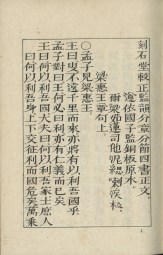 刻石堂較正監謨分章分節四書正文
遵依國子監銅板原本
梁惠王章句上
○孟子見梁惠王
王曰叟不遠千里而來亦將有以利吾國乎
孟子對曰王何必曰利亦有仁義而已矣
王曰何以利吾國大夫曰何以利吾家士庶人
曰何以利吾身上下交征利而國危矣萬乘